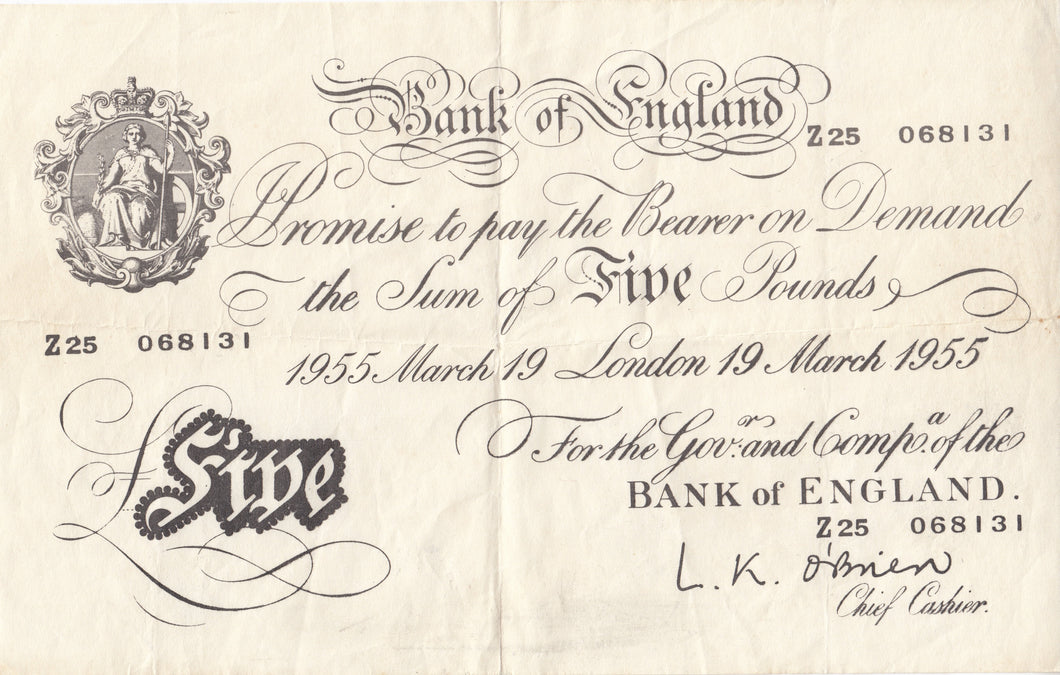 Bank of England
Z25 068131
I Promise to pay the Bearer on Demand
the Sum of Five Pounds
Z25 068131
1955 March 19 London 19 March 1955
£Five
For the Govʳ: and Compᵃ: of the
BANK of ENGLAND.
Z25 068131
L. K. O'Brien
Chief Cashier.